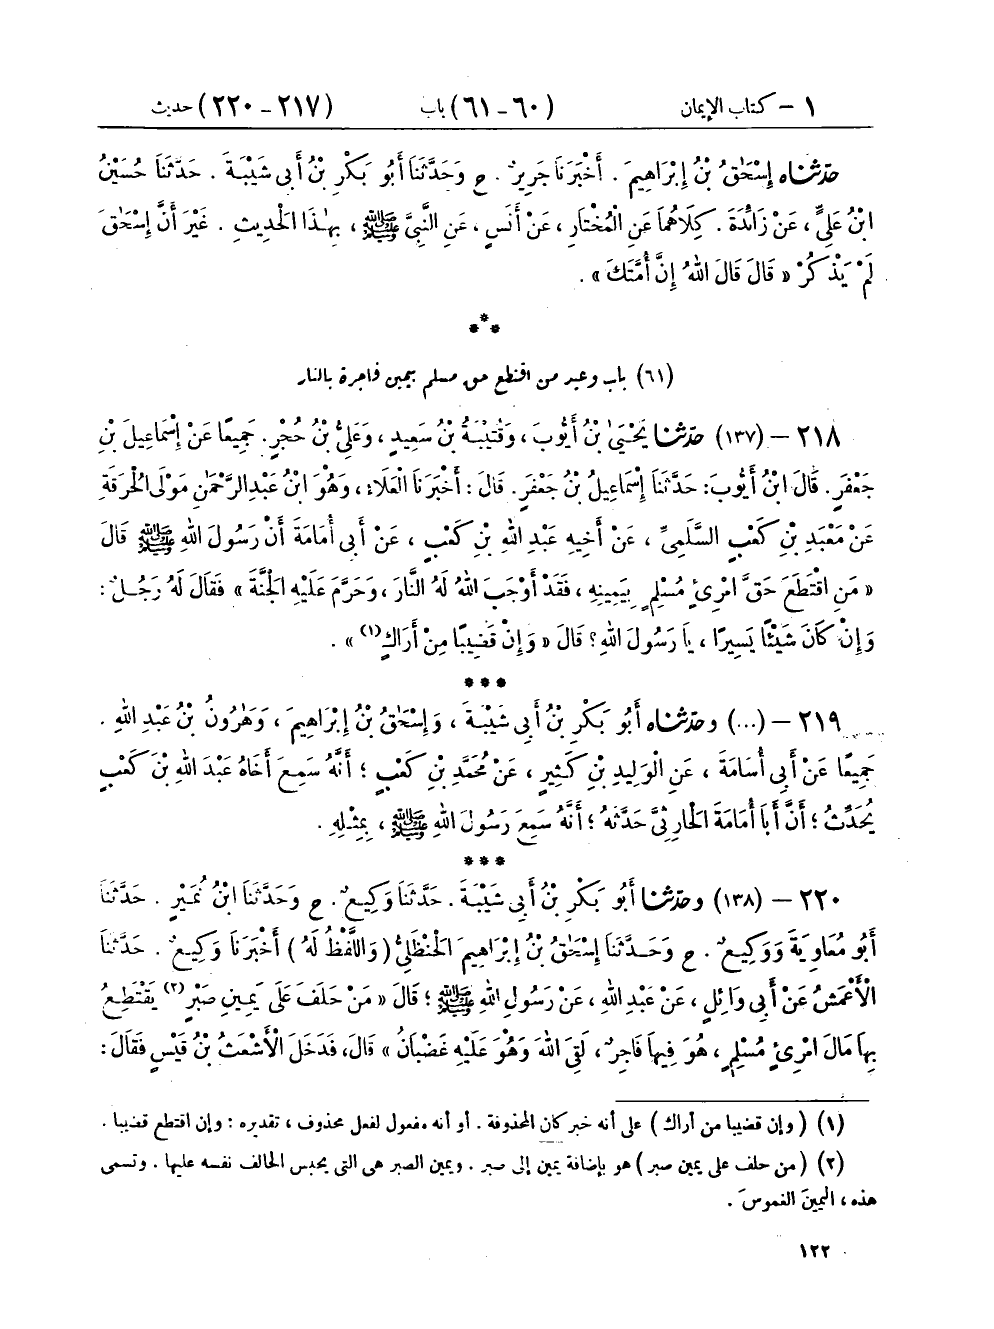 ١ - كتاب الإيمان (٦٠ - ٦١) باب (٢١٧ - ٢٢٠) حديث
حدّثناه إِسْحَٰقُ بْنُ إِبْرَاهِيمَ . أَخْبَرَنَا جَرِيرٌ . ح وَحَدَّثَنَا أَبُو بَكْرِ بْنُ أَبِي شَيْبَةَ . حَدَّثَنَا حُسَيْنُ
ابْنُ عَلِيٍّ ، عَنْ زَائِدَةَ . كِلَاهُمَا عَنِ الْمُخْتَارِ ، عَنْ أَنَسٍ ، عَنِ النَّبِيِّ ﷺ ، بِهَٰذَا الْحَدِيثِ . غَيْرَ أَنَّ إِسْحَٰقَ
لَمْ يَذْكُرْ « قَالَ قَالَ اللهُ إِنَّ أُمَّتَكَ » .
***
(٦١) باب وعيد من اقتطع حق مسلم بيمين فاجرة بالنار
٢١٨ - (١٣٧) حدّثنا يَحْيَىٰ بْنُ أَيُّوبَ ، وَقُتَيْبَةُ بْنُ سَعِيدٍ ، وَعَلِيُّ بْنُ حُجْرٍ. جَمِيعًا عَنْ إِسْمَاعِيلَ بْنِ
جَعْفَرٍ . قَالَ ابْنُ أَيُّوبَ: حَدَّثَنَا إِسْمَاعِيلُ بْنُ جَعْفَرٍ. قَالَ : أَخْبَرَنَا الْعَلَاءُ ، وَهُوَ ابْنُ عَبْدِ الرَّحْمَٰنِ مَوْلَى الْحُرَقَةِ
عَنْ مَعْبَدِ بْنِ كَعْبٍ السَّلَمِيِّ ، عَنْ أَخِيهِ عَبْدِ اللهِ بْنِ كَعْبٍ ، عَنْ أَبِي أُمَامَةَ أَنَّ رَسُولَ اللهِ ﷺ قَالَ
« مَنِ اقْتَطَعَ حَقَّ امْرِئٍ مُسْلِمٍ بِيَمِينِهِ ، فَقَدْ أَوْجَبَ اللهُ لَهُ النَّارَ ، وَحَرَّمَ عَلَيْهِ الْجَنَّةَ » فَقَالَ لَهُ رَجُلٌ :
وَإِنْ كَانَ شَيْئًا يَسِيرًا ، يَا رَسُولَ اللهِ؟ قَالَ « وَإِنْ قَضِيبًا مِنْ أَرَاكٍ(١) » .
***
٢١٩ - (...) وحدّثناه أَبُو بَكْرِ بْنُ أَبِي شَيْبَةَ ، وَإِسْحَٰقُ بْنُ إِبْرَاهِيمَ ، وَهَٰرُونُ بْنُ عَبْدِ اللهِ .
جَمِيعًا عَنْ أَبِي أُسَامَةَ ، عَنِ الْوَلِيدِ بْنِ كَثِيرٍ ، عَنْ مُحَمَّدِ بْنِ كَعْبٍ ؛ أَنَّهُ سَمِعَ أَخَاهُ عَبْدَ اللهِ بْنَ كَعْبٍ
يُحَدِّثُ ؛ أَنَّ أَبَا أُمَامَةَ الْحَارِثِيَّ حَدَّثَهُ ؛ أَنَّهُ سَمِعَ رَسُولَ اللهِ ﷺ ، بِمِثْلِهِ .
***
٢٢٠ - (١٣٨) وحدّثنا أَبُو بَكْرِ بْنُ أَبِي شَيْبَةَ . حَدَّثَنَا وَكِيعٌ . ح وَحَدَّثَنَا ابْنُ نُمَيْرٍ . حَدَّثَنَا
أَبُو مُعَاوِيَةَ وَوَكِيعٌ . ح وَحَدَّثَنَا إِسْحَٰقُ بْنُ إِبْرَاهِيمَ الْحَنْظَلِيُّ ( وَاللَّفْظُ لَهُ ) أَخْبَرَنَا وَكِيعٌ . حَدَّثَنَا
الْأَعْمَشُ عَنْ أَبِي وَائِلٍ ، عَنْ عَبْدِ اللهِ ، عَنْ رَسُولِ اللهِ ﷺ ؛ قَالَ « مَنْ حَلَفَ عَلَى يَمِينِ صَبْرٍ(٢) يَقْتَطِعُ
بِهَا مَالَ امْرِئٍ مُسْلِمٍ ، هُوَ فِيهَا فَاجِرٌ ، لَقِيَ اللهَ وَهُوَ عَلَيْهِ غَضْبَانُ » قَالَ، فَدَخَلَ الْأَشْعَثُ بْنُ قَيْسٍ فَقَالَ :
(١) ( وإن قضيبا من أراك ) على أنه خبر كان المحذوفة . أو أنه مفعول لفعل محذوف ، تقديره : وإن اقتطع قضيبا .
(٢) ( من حلف على يمين صبر ) هو بإضافة يمين إلى صبر . ويمين الصبر هى التى يحبس الحالف نفسه عليها . وتسمى
هذه ، اليمينَ الغموسَ .
١٢٢